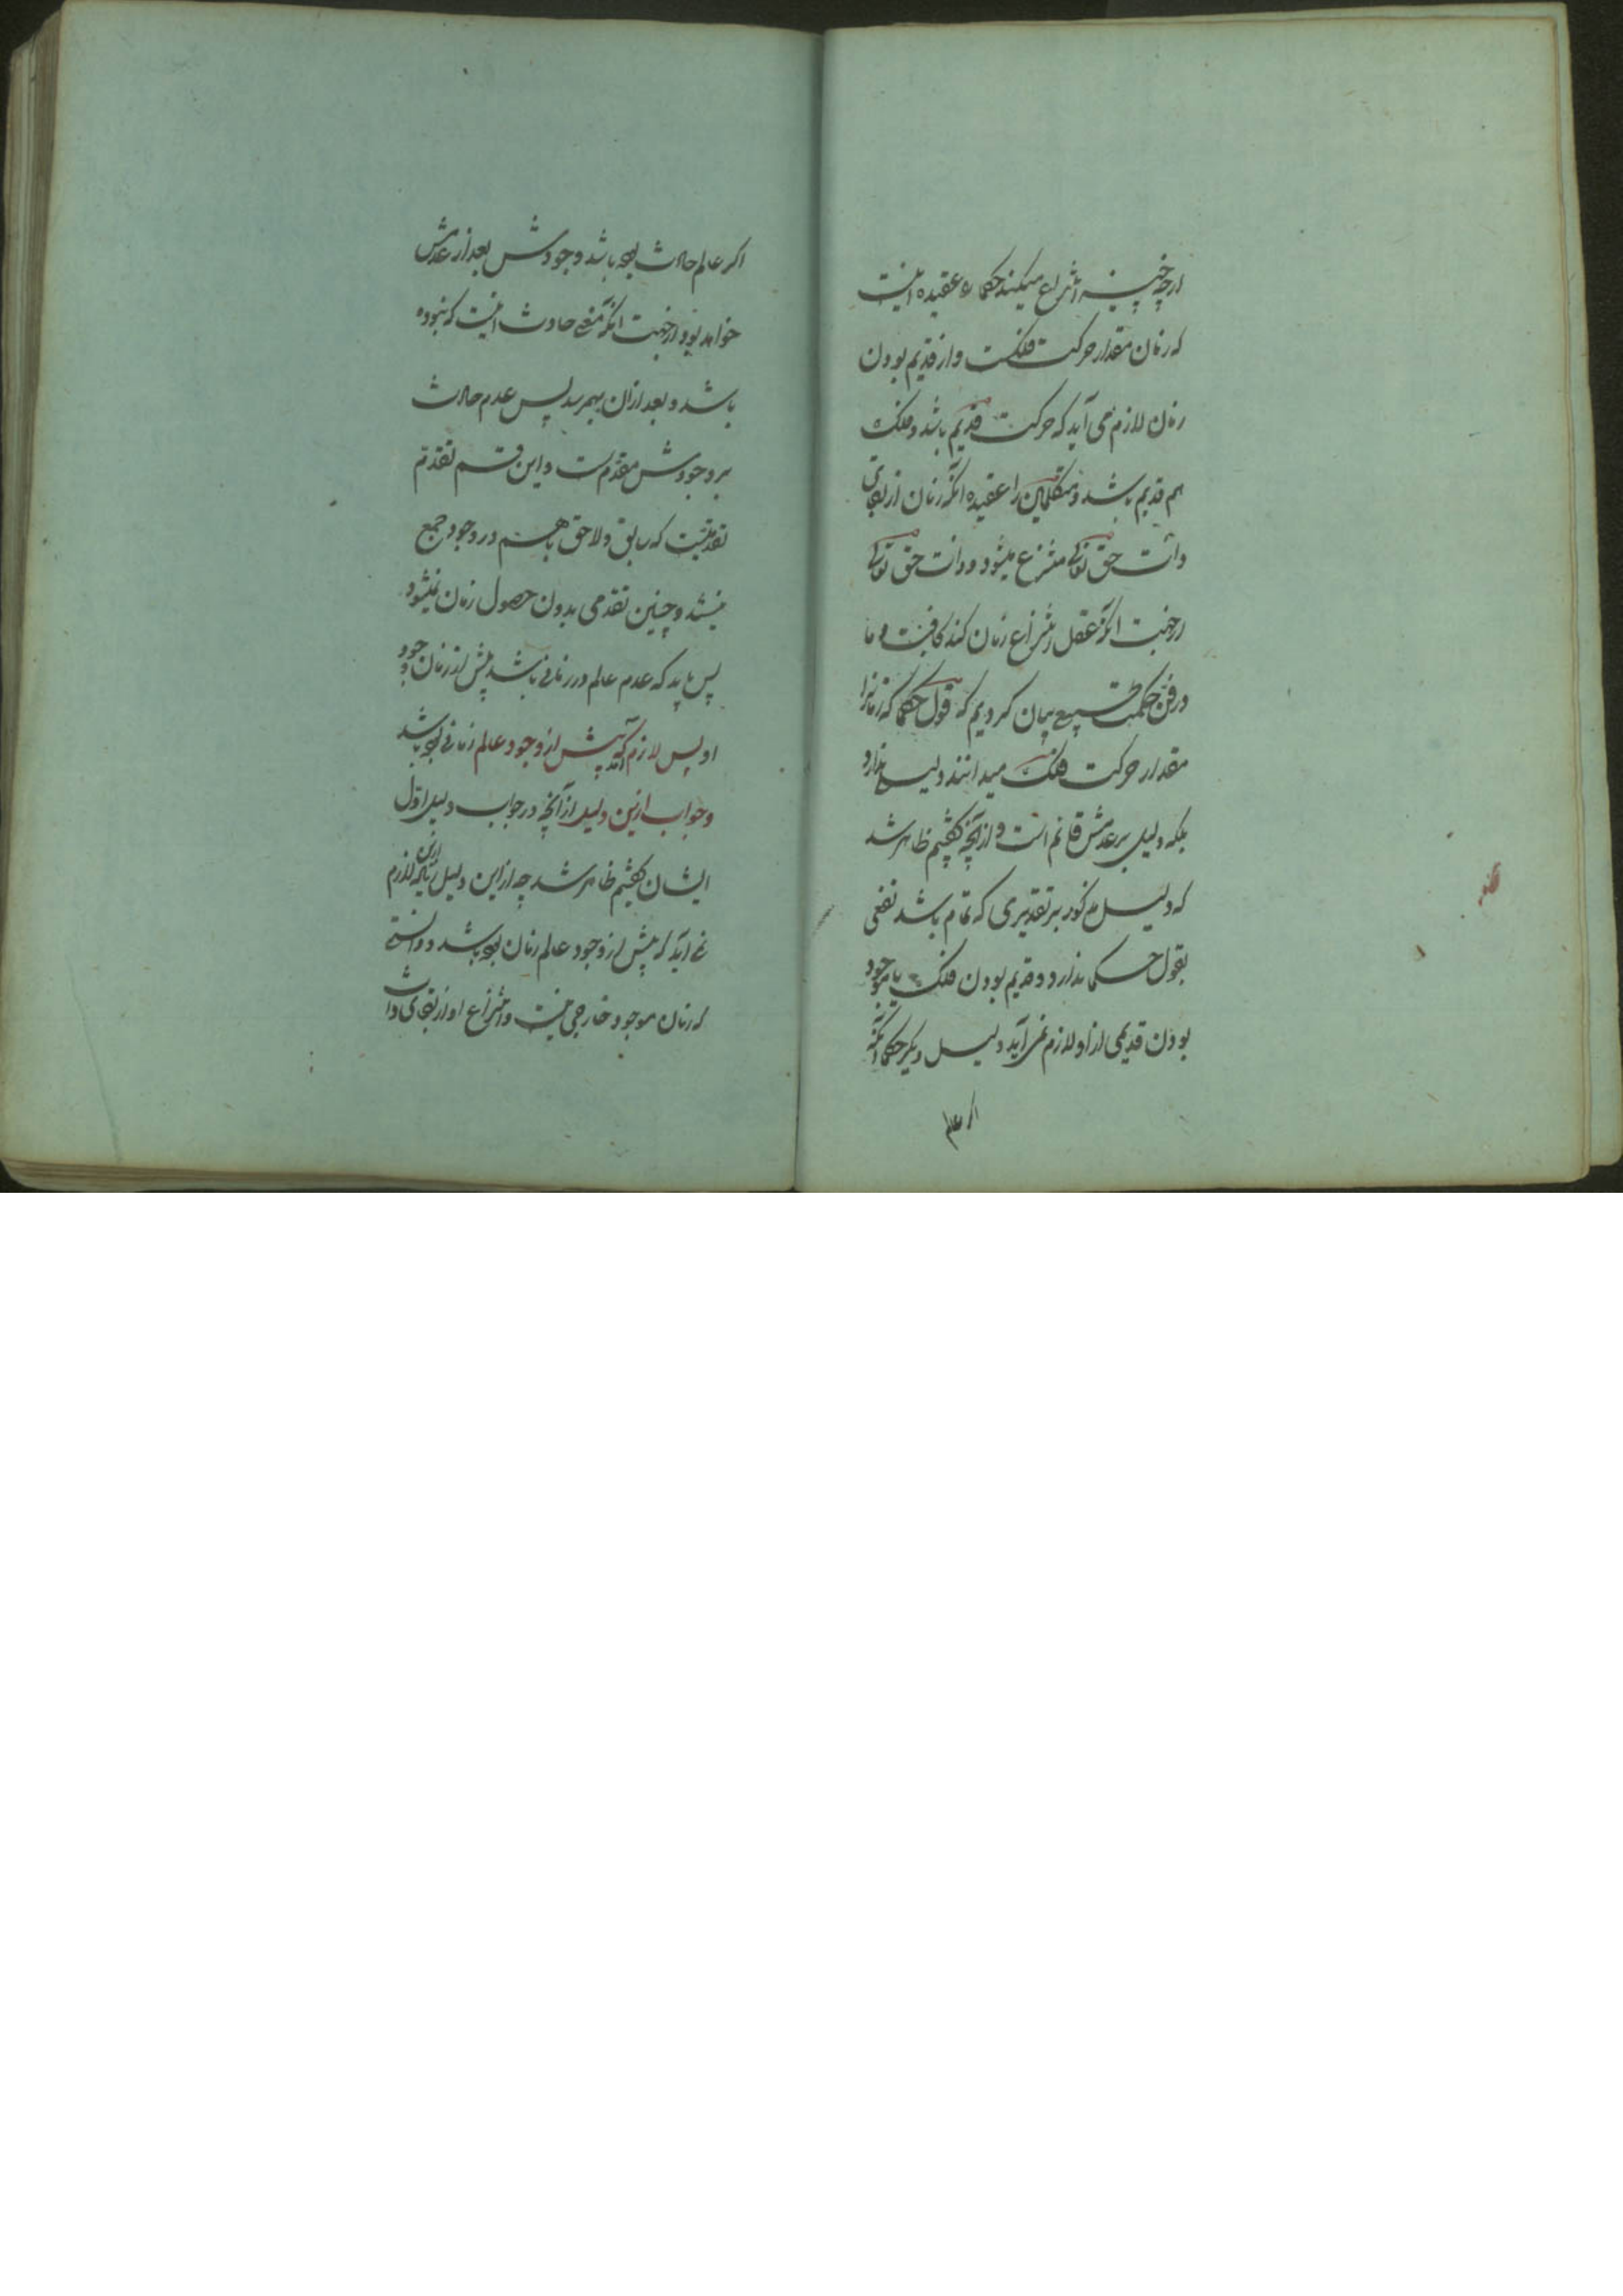 از چه چیز انتزاع میکند حکما را عقیده اینست
که زمان مقدار حرکت فلکست و از قدیم بودن
زمان لازم می آید که حرکت قدیم باشد و فلک
هم قدیم باشد و متکلمین را عقیده آنکه زمان از بقای
ذات حق تعالی منتزع میشود و ذات حق تعالی
از جهت آنکه عقل انتزاع زمان کند کافیست و ما
در فن حکمت طبیعی بیان کردیم که قول حکما که زمانرا
مقدار حرکت فلک میدانند دلیل ندارد
بلکه دلیل بر عدمش قائم است و از آنچه گفتیم ظاهر شد
که دلیل مذکور بر تقدیری که تمام باشد نفعی
بقول حکما ندارد و قدیم بودن فلک یا موجود
بودن قدیمی از او لازم نمی آید دلیل دیگر حکما آنکه
اگر عالم
اگر عالم حادث بوده باشد وجودش بعد از عدمش
خواهد بود از جهت آنکه معنی حادث اینست که نبوده
باشد و بعد از آن بهمرسد پس عدم حادث
بر وجودش مقدم است و این قسم تقدم
تقدمیست که سابق و لاحق با هم در وجود جمع
نیستند و چنین تقدمی بدون حصول زمان نمیشود
پس باید که عدم عالم در زمانی باشد پیش از زمان وجود
او پس لازم آید که پیش از وجود عالم زمانی بوده باشد
و جواب ازین دلیل از آنچه در جواب دلیل اول
ایشان گفتیم ظاهر شد چه از این دلیل لازم
نمی آید که پیش از وجود عالم زمان بوده باشد و دانستی
که زمان موجود خارجی نیست و انتزاع او از بقای ذات